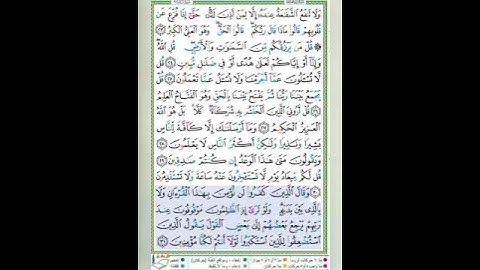 وَلَا تَنفَعُ ٱلشَّفَٰعَةُ عِندَهُۥٓ إِلَّا لِمَنْ أَذِنَ لَهُۥ ۚ حَتَّىٰٓ إِذَا فُزِّعَ عَن
قُلُوبِهِمْ قَالُوا۟ مَاذَا قَالَ رَبُّكُمْ ۖ قَالُوا۟ ٱلْحَقَّ ۖ وَهُوَ ٱلْعَلِىُّ ٱلْكَبِيرُ ﴿٢٣﴾
۞ قُلْ مَن يَرْزُقُكُم مِّنَ ٱلسَّمَٰوَٰتِ وَٱلْأَرْضِ ۖ قُلِ ٱللَّهُ ۖ
وَإِنَّآ أَوْ إِيَّاكُمْ لَعَلَىٰ هُدًى أَوْ فِى ضَلَٰلٍ مُّبِينٍ ﴿٢٤﴾ قُل
لَّا تُسْـَٔلُونَ عَمَّآ أَجْرَمْنَا وَلَا نُسْـَٔلُ عَمَّا تَعْمَلُونَ ﴿٢٥﴾ قُلْ
يَجْمَعُ بَيْنَنَا رَبُّنَا ثُمَّ يَفْتَحُ بَيْنَنَا بِٱلْحَقِّ وَهُوَ ٱلْفَتَّاحُ ٱلْعَلِيمُ
﴿٢٦﴾ قُلْ أَرُونِىَ ٱلَّذِينَ أَلْحَقْتُم بِهِۦ شُرَكَآءَ ۖ كَلَّا ۚ بَلْ هُوَ ٱللَّهُ
ٱلْعَزِيزُ ٱلْحَكِيمُ ﴿٢٧﴾ وَمَآ أَرْسَلْنَٰكَ إِلَّا كَآفَّةً لِّلنَّاسِ
بَشِيرًا وَنَذِيرًا وَلَٰكِنَّ أَكْثَرَ ٱلنَّاسِ لَا يَعْلَمُونَ ﴿٢٨﴾
وَيَقُولُونَ مَتَىٰ هَٰذَا ٱلْوَعْدُ إِن كُنتُمْ صَٰدِقِينَ ﴿٢٩﴾
قُل لَّكُم مِّيعَادُ يَوْمٍ لَّا تَسْتَـْٔخِرُونَ عَنْهُ سَاعَةً وَلَا تَسْتَقْدِمُونَ
﴿٣٠﴾ وَقَالَ ٱلَّذِينَ كَفَرُوا۟ لَن نُّؤْمِنَ بِهَٰذَا ٱلْقُرْءَانِ وَلَا
بِٱلَّذِى بَيْنَ يَدَيْهِ ۗ وَلَوْ تَرَىٰٓ إِذِ ٱلظَّٰلِمُونَ مَوْقُوفُونَ عِندَ
رَبِّهِمْ يَرْجِعُ بَعْضُهُمْ إِلَىٰ بَعْضٍ ٱلْقَوْلَ يَقُولُ ٱلَّذِينَ
ٱسْتُضْعِفُوا۟ لِلَّذِينَ ٱسْتَكْبَرُوا۟ لَوْلَآ أَنتُمْ لَكُنَّا مُؤْمِنِينَ ﴿٣١﴾